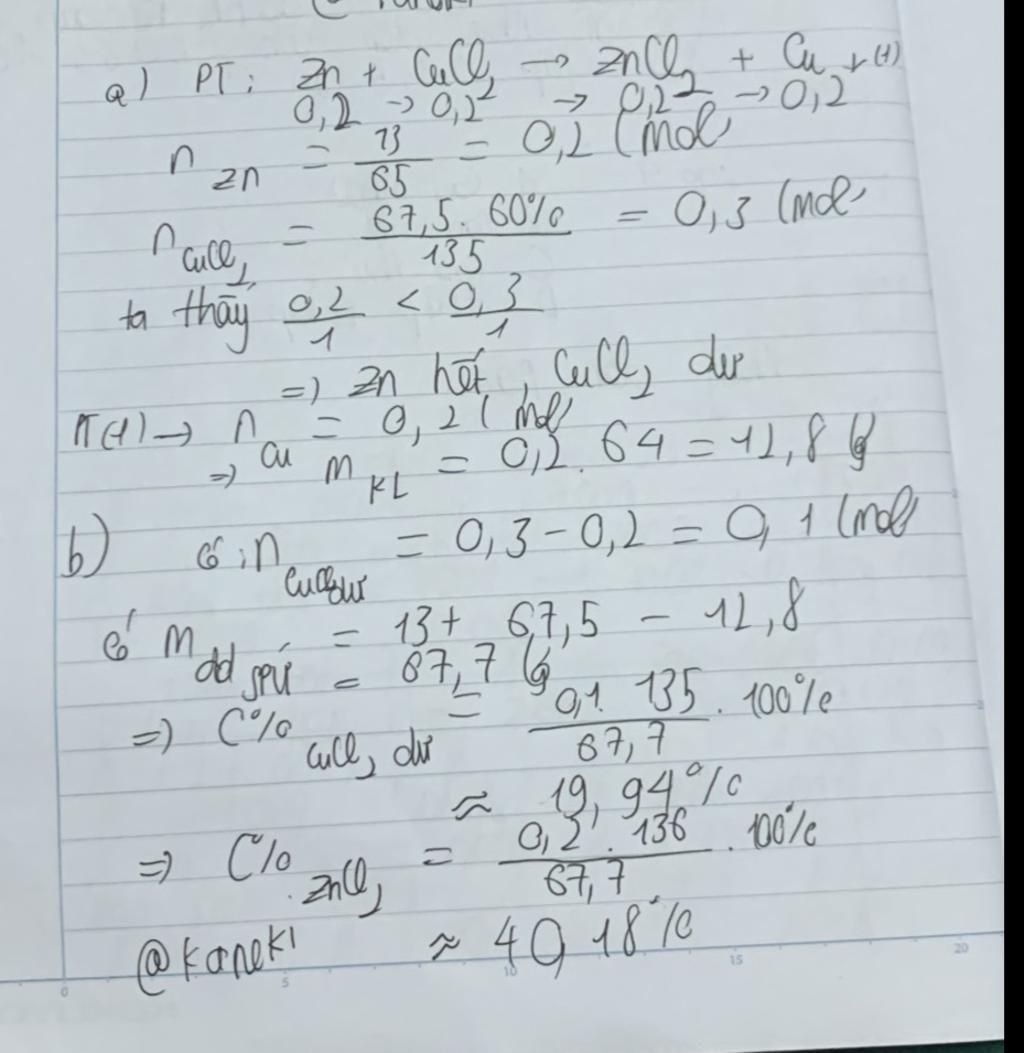 a) PT: Zn + CuCl₂ → ZnCl₂ + Cu↓ (1)
0,2 → 0,2 → 0,2 → 0,2
n Zn = 13/65 = 0,2 (mol)
n CuCl₂ = 67,5 . 60% / 135 = 0,3 (mol)
ta thấy 0,2/1 < 0,3/1
=> Zn hết, CuCl₂ dư
PT(1) → n Cu = 0,2 (mol)
=> m KL = 0,2 . 64 = 12,8 (g)
b) có: n CuCl₂ dư = 0,3 - 0,2 = 0,1 (mol)
có m dd spứ = 13 + 67,5 - 12,8
= 67,7 (g)
=> C% CuCl₂ dư = 0,1 . 135 / 67,7 . 100%
≈ 19,94%
=> C% ZnCl₂ = 0,2 . 136 / 67,7 . 100%
@kaneki ≈ 40,18%
0 5 10 15 20